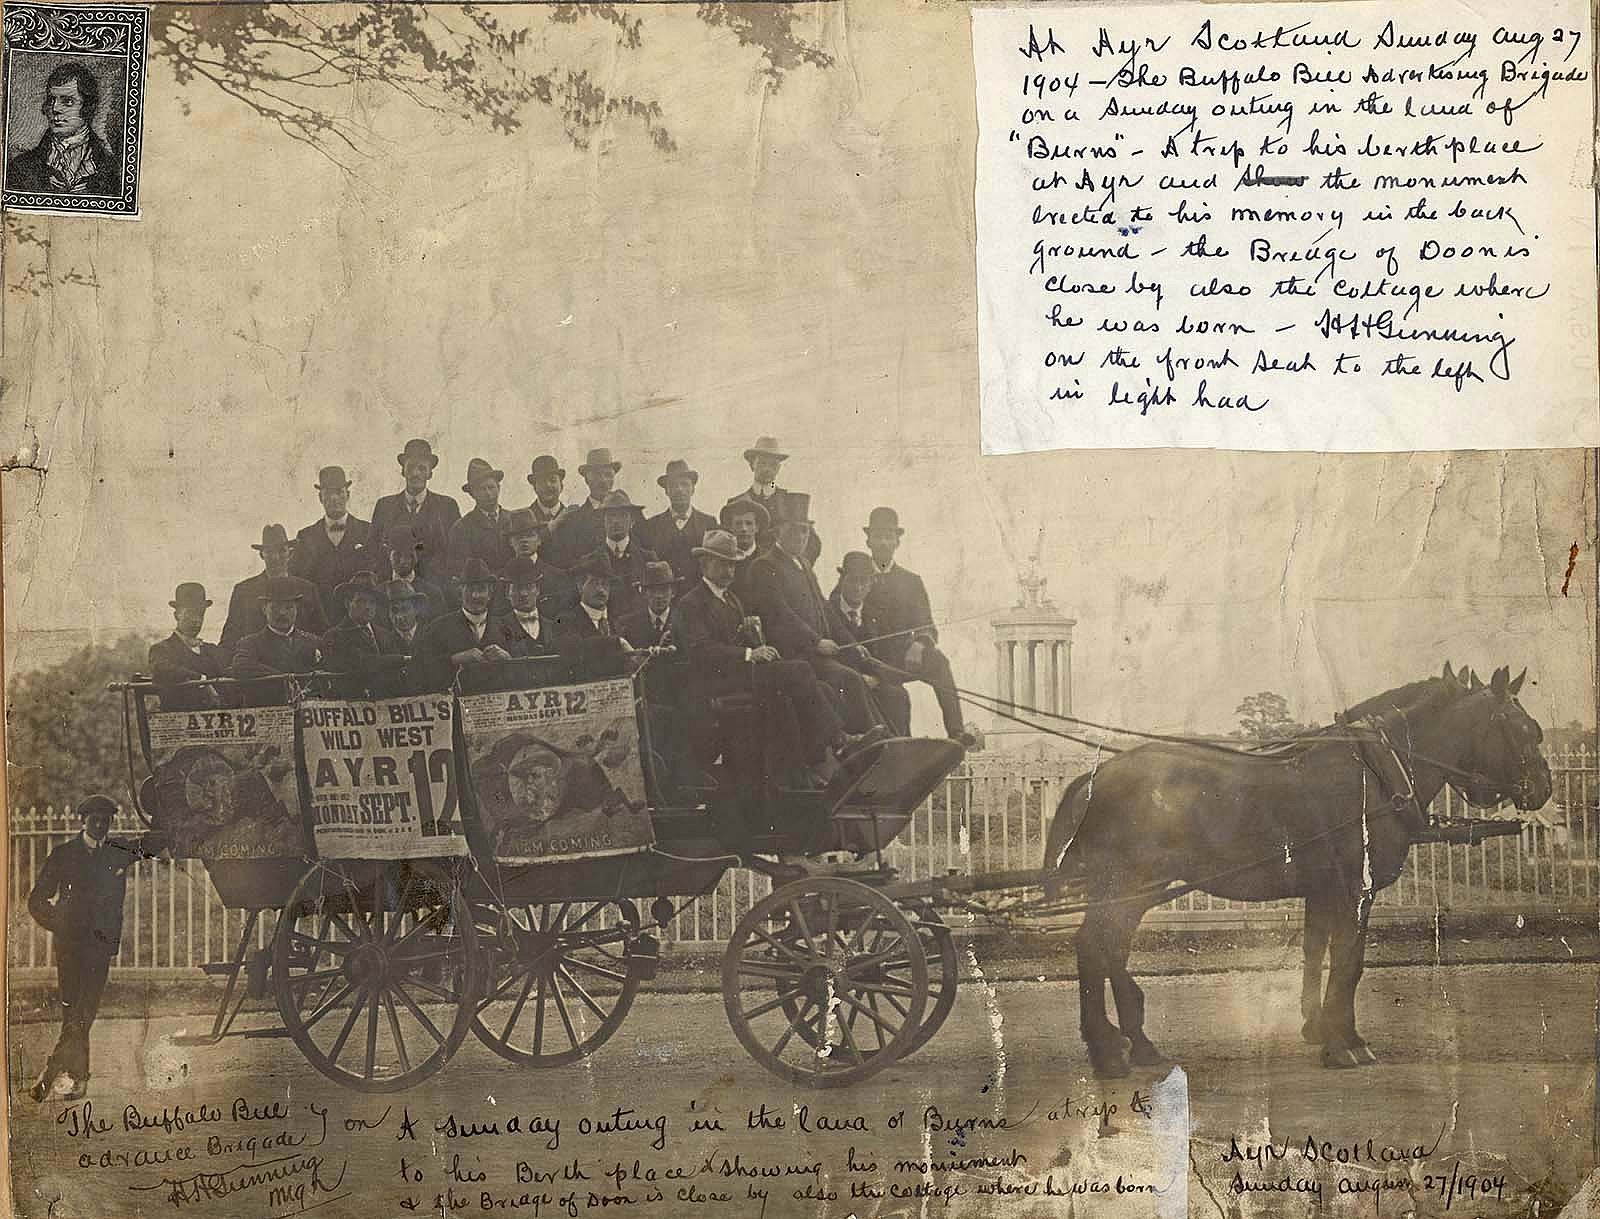 At Ayr Scotland Sunday Aug 27
1904 - The Buffalo Bill Advertising Brigade
on a Sunday outing in the land of
"Burns" - A trip to his berth place
at Ayr and the monument
erected to his memory in the back
ground - the Bridge of Doon is
close by also the cottage where
he was born - H H Gunning
on the front seat to the left
in light had
AYR 12
MONDAY SEPT.
I AM COMING
BUFFALO BILL'S
WILD WEST
AYR 12
MONDAY SEPT.
AYR 12
MONDAY SEPT 12
I AM COMING
The Buffalo Bill
advance Brigade
H H Gunning
Mgr
on A Sunday outing in the land of Burns a trip to
to his Berth place & showing his monument
& the Bridge of Doon is close by also the cottage where he was born
Ayr Scotland
Sunday August 27/1904